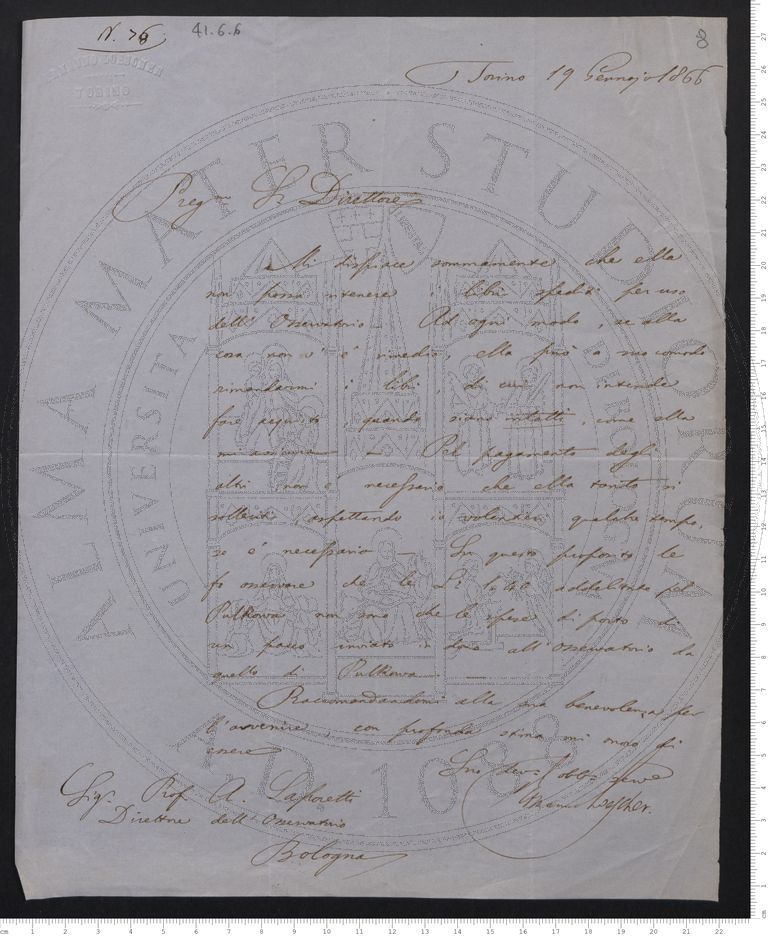 N. 76
41.6.6
8
Torino 19 Gennajo 1866
Preg.mo Sr. Direttore
Mi dispiace sommamente che ella
non possa ritenere i libri spediti per uso
dell' Osservatorio. Ad ogni modo, se alla
cosa non v' è rimedio, ella può a suo comodo
rimandarmi i libri, di cui non intende
fare acquisto, quando siano intatti, come ella
mi assicura — Pel pagamento degli
altri non è necessario che ella tanto si
solleciti, aspettando io volentieri qualche tempo,
se è necessario — In questo proposito le
fo osservare che le L. 1.40 addebitate pel
Pulkowa non sono che le spese di porto di
un pacco inviato in dono all' Osservatorio da
quello di Pulkowa —
Raccomandandomi alla sua benevolenza per
l'avvenire, con profonda stima mi onoro di
essere
Suo Dev. obbl. serve
Sig. Prof. A. Saporetti
Direttore dell' Osservatorio
Bologna
ALMA MATER STUDIORUM
UNIVERSITA
A.D. 1088
TORINO